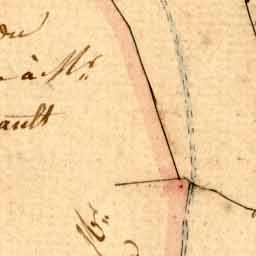 du
à Mr.
ault
Mr.